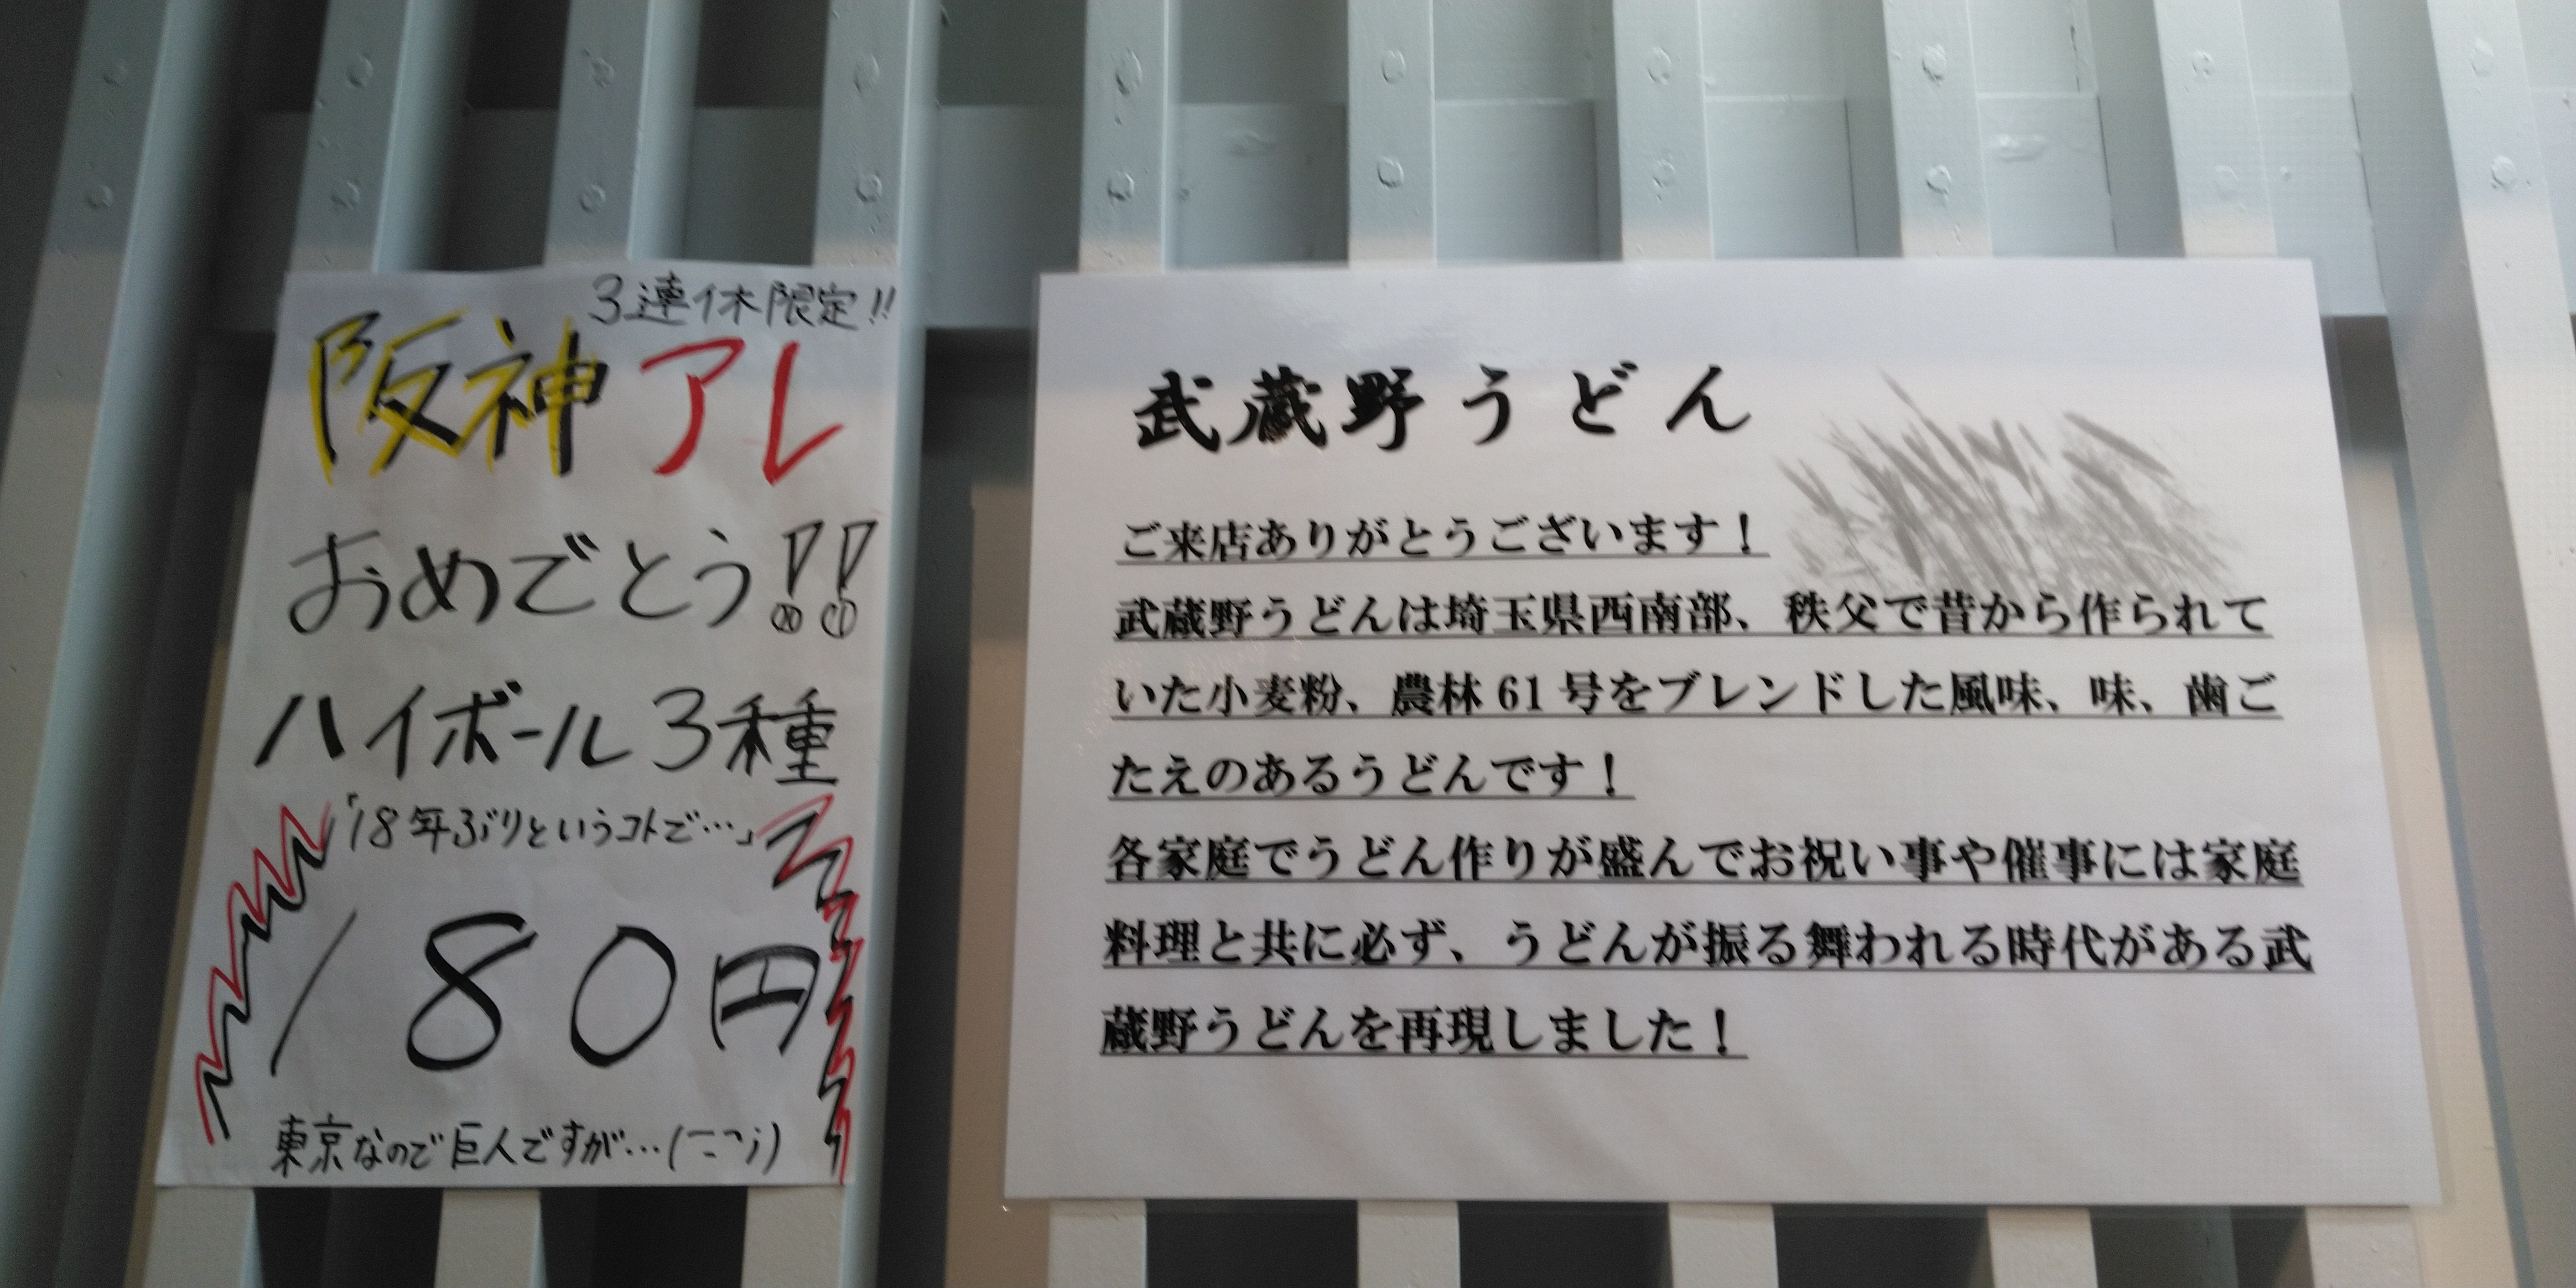 3連休限定!!
阪神アレ
おめでとう!!
ハイボール3種
「18年ぶりというコトで…」
180円
東京なので巨人ですが…
武蔵野うどん
ご来店ありがとうございます！
武蔵野うどんは埼玉県西南部、秩父で昔から作られて
いた小麦粉、農林61号をブレンドした風味、味、歯ご
たえのあるうどんです！
各家庭でうどん作りが盛んでお祝い事や催事には家庭
料理と共に必ず、うどんが振る舞われる時代がある武
蔵野うどんを再現しました！